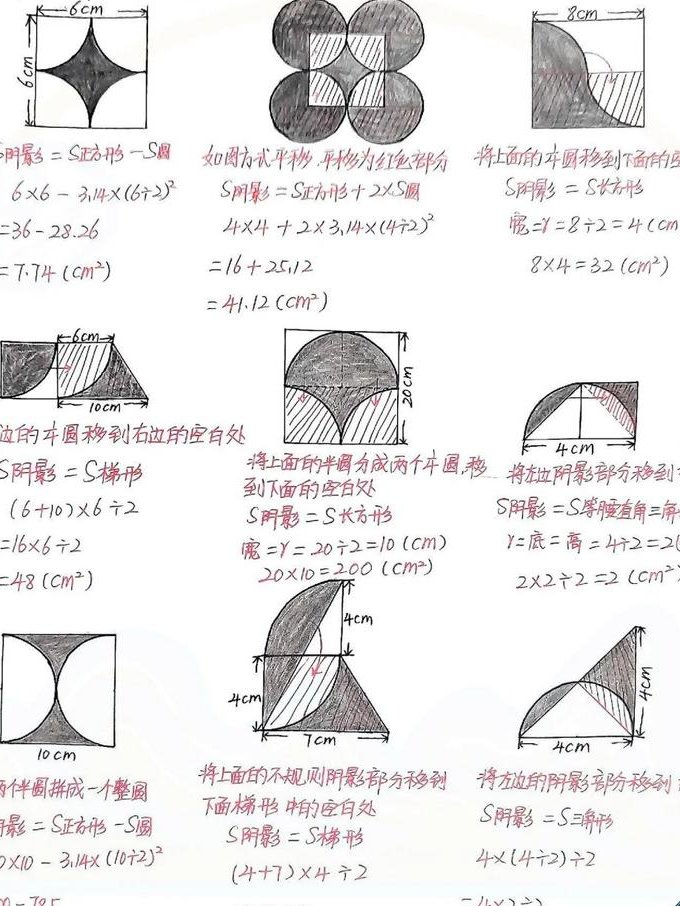 6cm
6cm
S阴影=S正方形-S圆
6×6-3.14×(6÷2)²
=36-28.26
=7.74(cm²)
如图方式平移,平移为红色部分
S阴影=S正方形+2×S圆
4×4+2×3.14×(4÷2)²
=16+25.12
=41.12(cm²)
8cm
将上面的圆移到下面的空
S阴影=S长方形
宽=r=8÷2=4(cm
8×4=32(cm²)
6cm
10cm
边的圆移到右边的空白处
S阴影=S梯形
(6+10)×6÷2
=16×6÷2
=48(cm²)
20cm
将上面的半圆分成两个圆,移
到下面的空白处
S阴影=S长方形
宽=r=20÷2=10(cm)
20×10=200(cm²)
4cm
将左边阴影部分移到
S阴影=S等腰直角三角
r=底=高=4÷2=2(
2×2÷2=2(cm²)
10cm
两个半圆拼成一个整圆
阴影=S正方形-S圆
0×10-3.14×(10÷2)²
4cm
4cm
7cm
将上面的不规则阴影部分移到
下面梯形中的空白处
S阴影=S梯形
(4+7)×4÷2
4cm
4cm
将左边的阴影部分移到
S阴影=S三角形
4×(4÷2)÷2
=4×2÷2